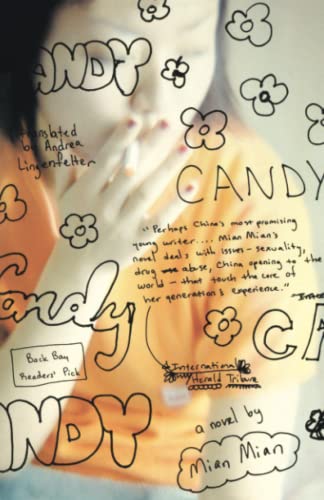 ANDY
C
translated
by Andrea
Lingenfelter
CANDY
"Perhaps China's most promising
young writer.... Mian Mian's
novel deals with issues — sexuality,
drug abuse, China opening to the
world — that touch the core of
her generation's experience."
Candy
CA
Back Bay
Readers' Pick
International
Herald Tribune
ANDY
a novel by
Mian Mian